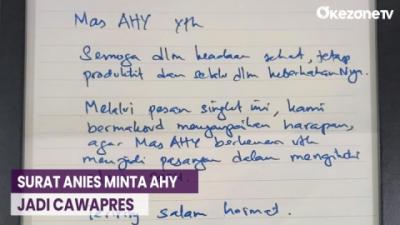 OKEZONETV
Mas AHY yth
Semoga dlm keadaan sehat, tetap
produktif dan selalu dlm keberkahanNya.
Melalui pesan singkat ini, kami
bermaksud menyampaikan harapan,
agar Mas AHY berkenan utk
menjadi pasangan dalam mengikuti
SURAT ANIES MINTA AHY
JADI CAWAPRES
salam hormat.